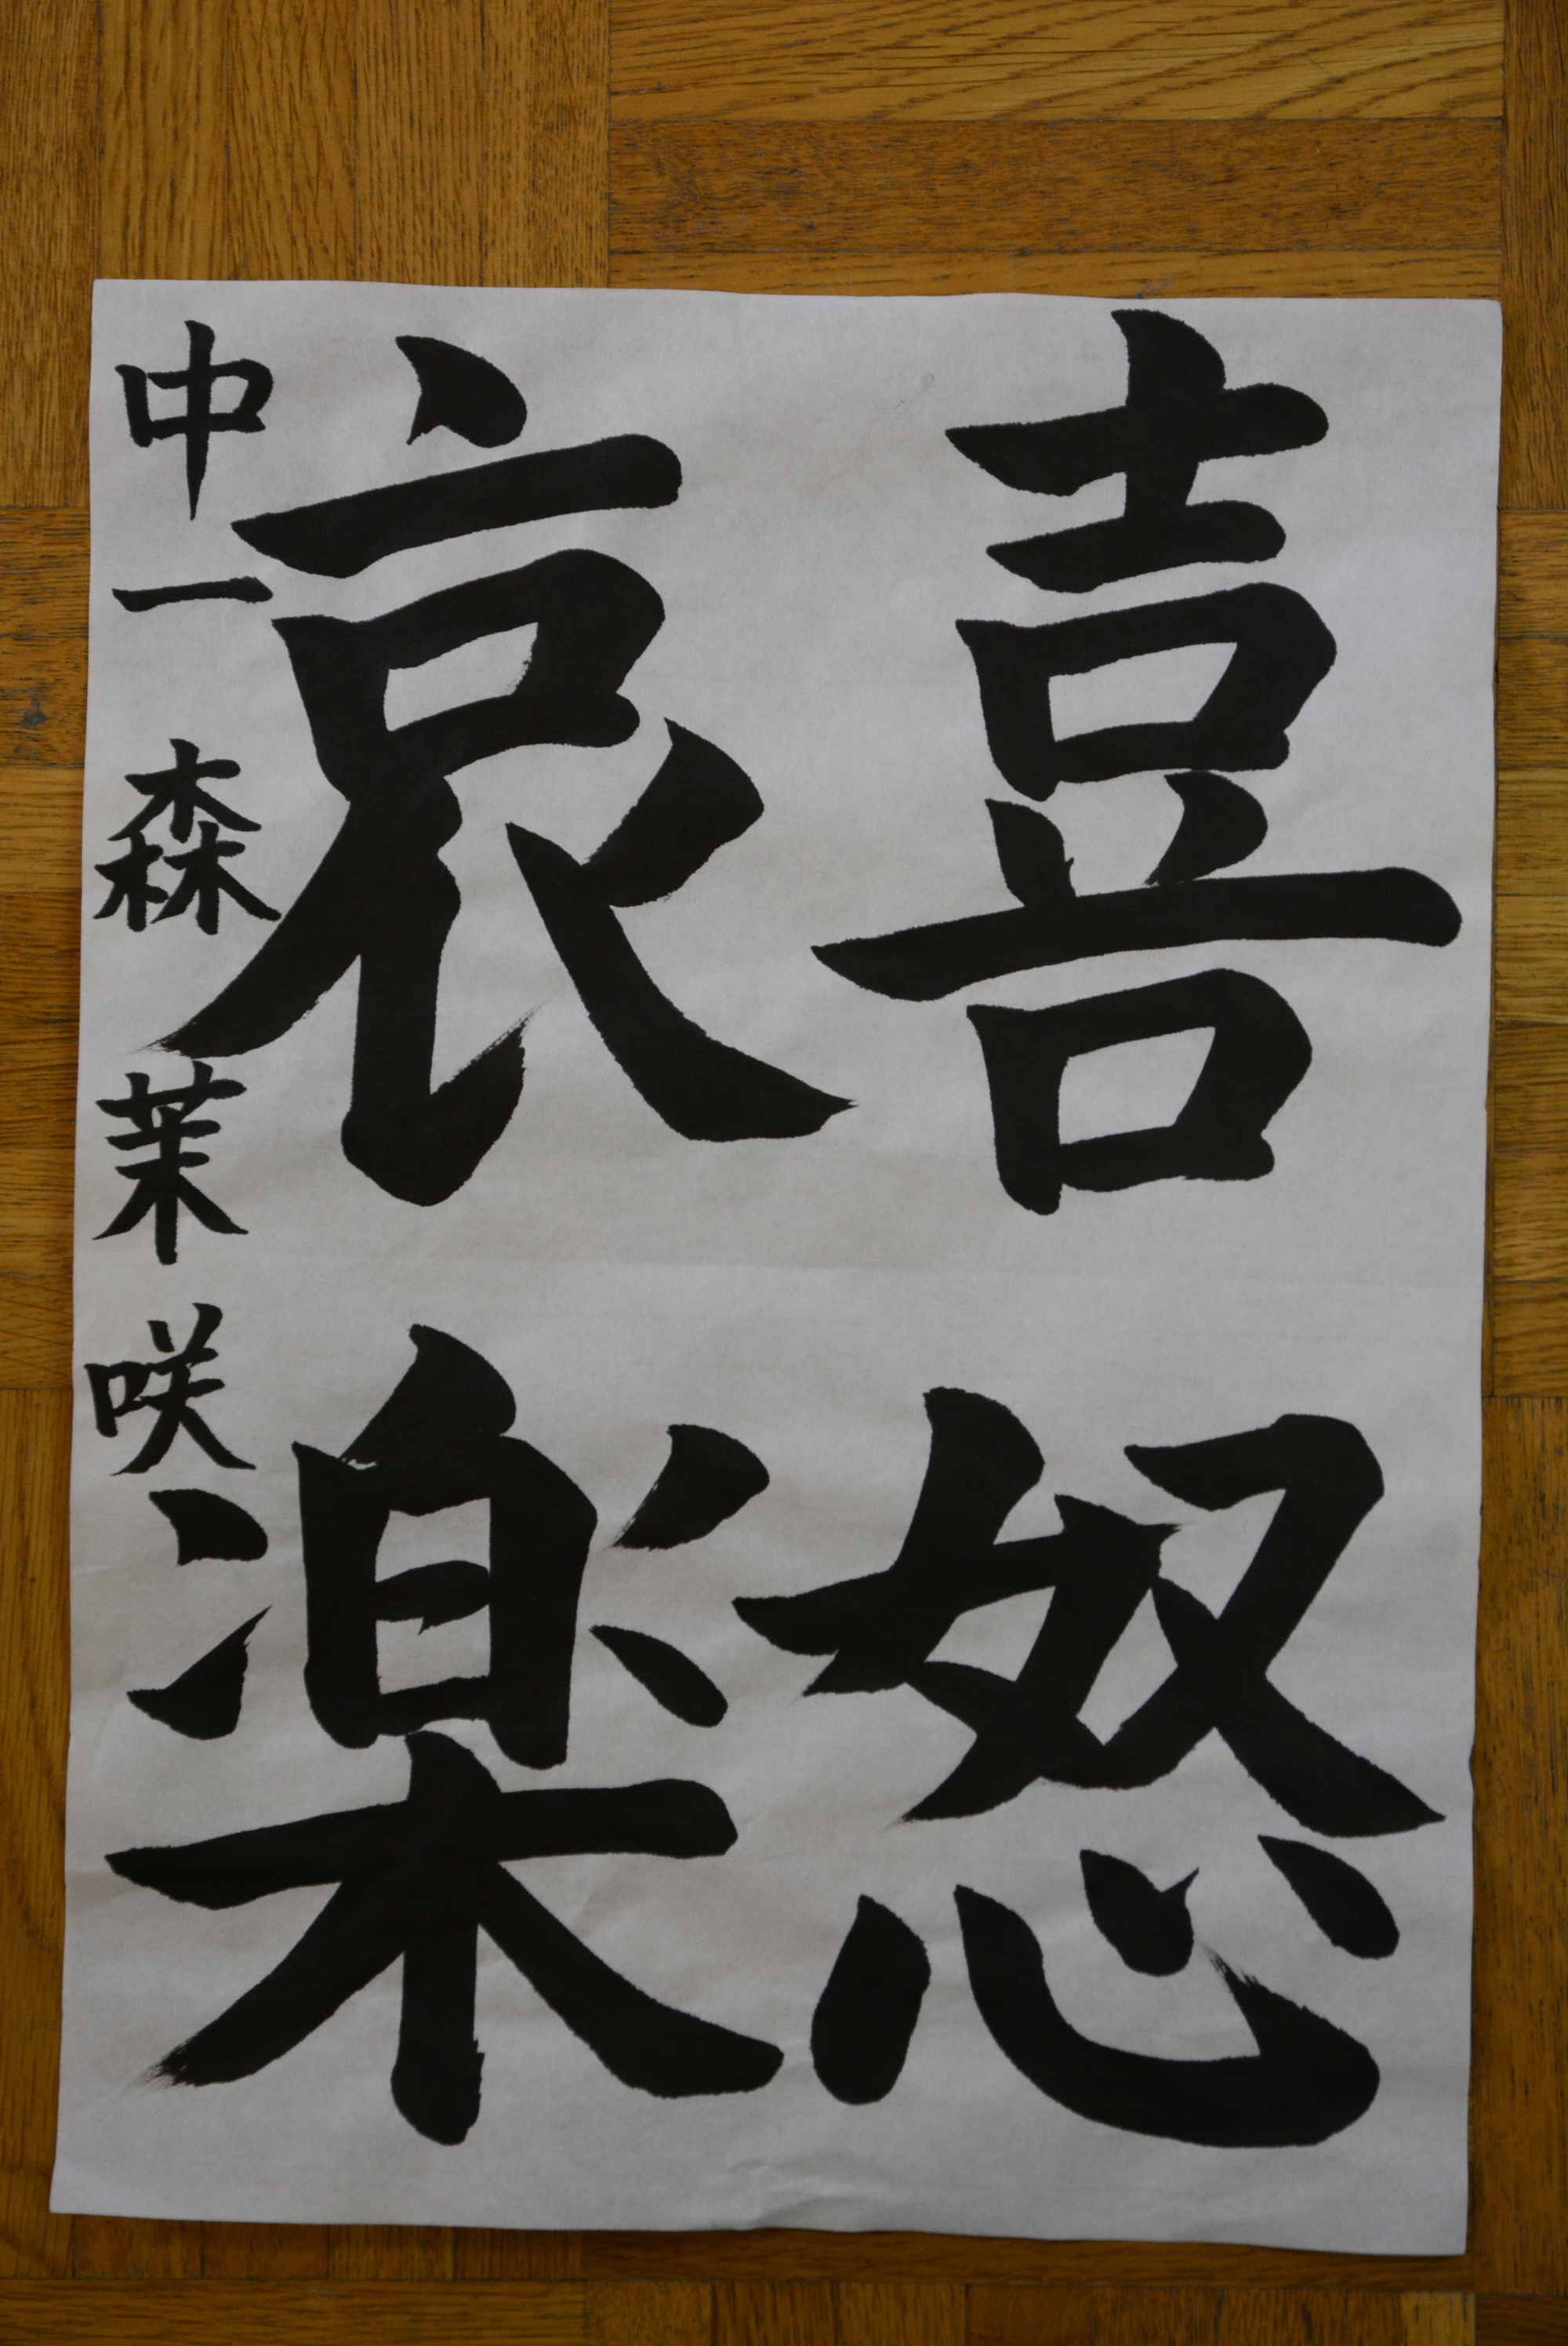 喜怒
哀楽
中一 森 茉咲